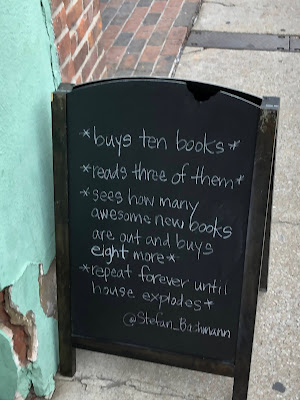 *buys ten books*
*reads three of them*
*sees how many
awesome new books
are out and buys
eight more*
*repeat forever until
house explodes*
@Stefan_Bachmann